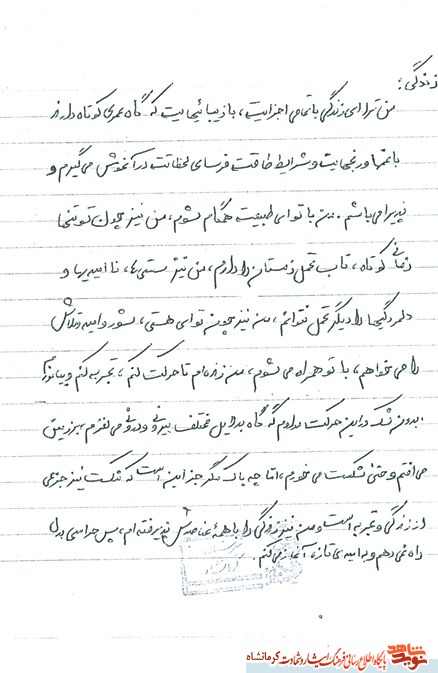 زندگی:
من ترا ای زندگی با تمامی اجزایت، با زیبائیهایت که گاه عمری کوتاه دارند
با غمها و رنجهایت و شرایط طاقت فرسای لحظاتت در آغوش می گیرم و
پذیرا می باشم. من با تو ای طبیعت همگام شوم، من نیز چون تو تنها
زمانی کوتاه، تاب تحمل زمستان را دارم، من نیز سستی ها، ناامیدیها و
دلمردگیها را دیگر تحمل نتوانم، من نیز چون تو ای هستی، شور و امید و تلاش
را می خواهم، با تو همراه می شوم، من زنده ام تا حرکت کنم، تجربه کنم و بیاموزم
بدون شک در این حرکت مداوم که گاه بدلایل مختلف بیرونی و درونی می لغزم بر زمین
می افتم و حتی شکست می خورم، اما چه باک مگر جز این است که شکست نیز جزئی
از زندگی و تجربه است و من نیز زندگی را با همهٔ عناصرش پذیرفته ام، پس هراسی بدل
راه نمی دهم و به امیدی تازه، آغاز می کنم.
نوید شاهد
پایگاه اطلاع رسانی فرهنگ ایثار و شهادت کرمانشاه